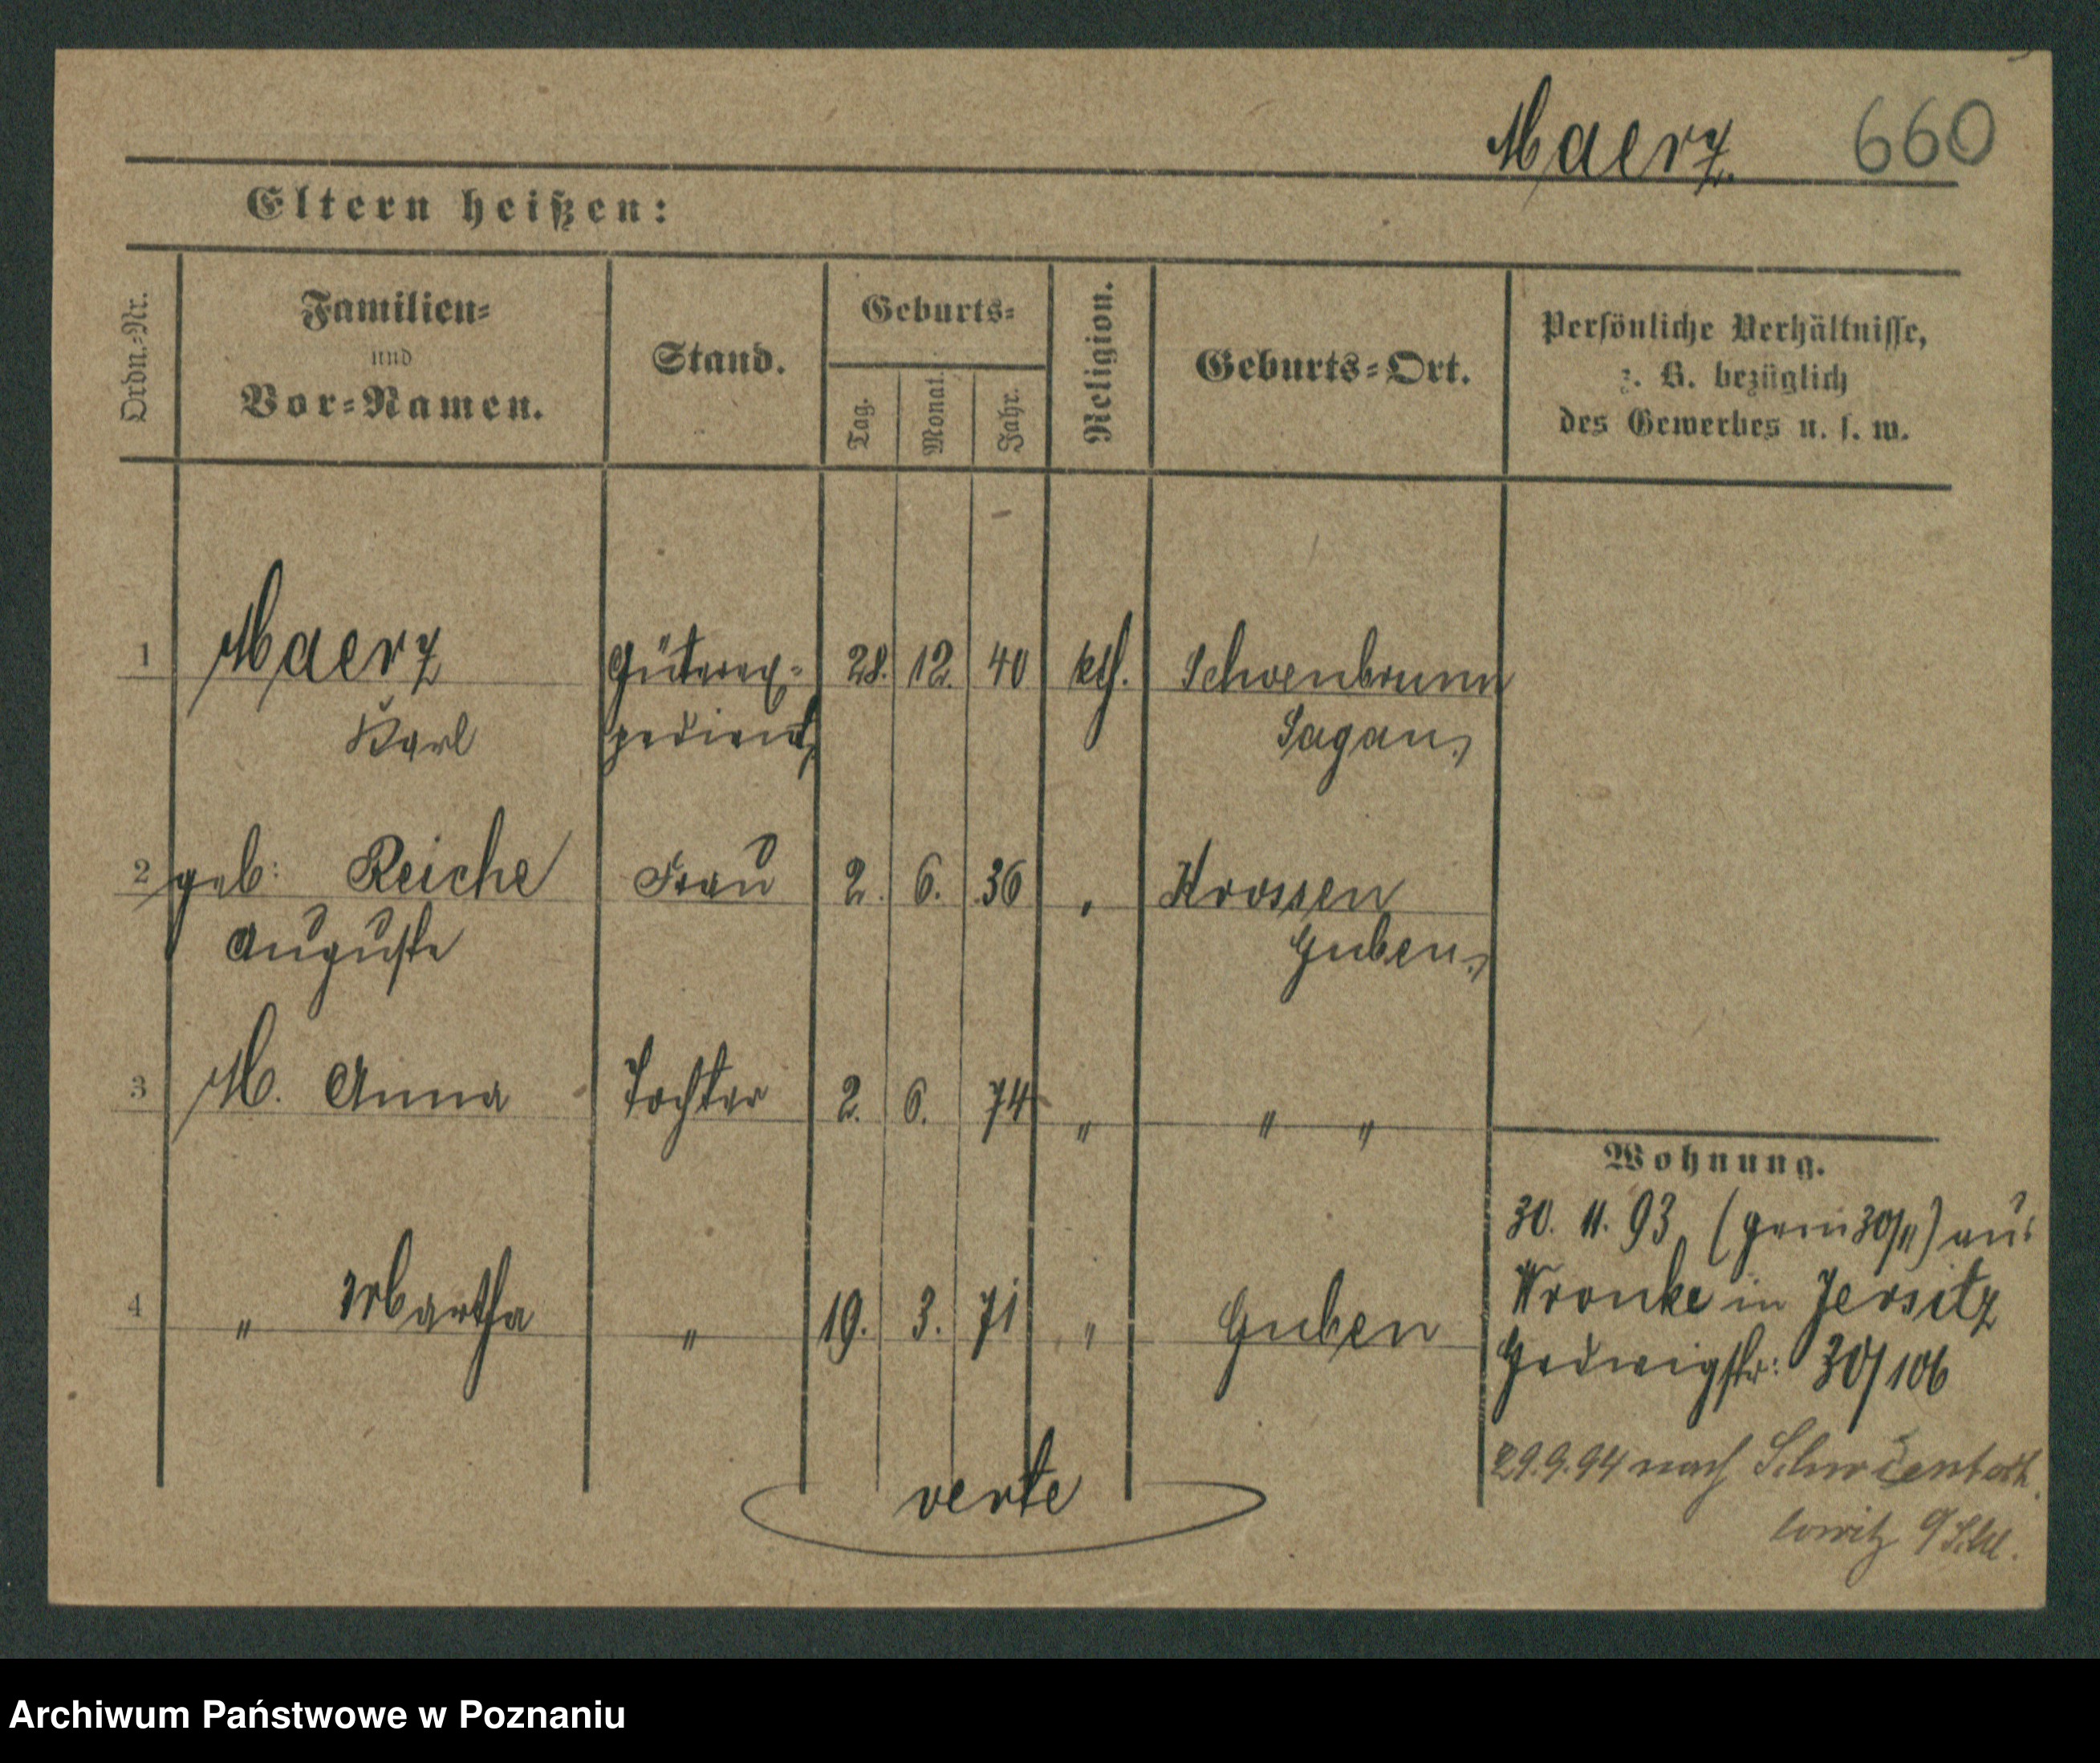 Maerz. 660
Eltern heißen:
Ordn.-Nr.
Familien-
und
Vor-Namen.
Stand.
Geburts-
Tag.
Monat.
Jahr.
Religion.
Geburts-Ort.
Persönliche Verhältnisse,
z. B. bezüglich
des Gewerbes u. s. w.
1 Maerz Güterex- 28. 12. 40 kth. Schoenbrunn
Karl pedient, Sagan,
2 geb: Reiche Frau 2. 6. 36 " Krossen
Auguste Guben,
3 M. Anna Tochter 2. 6. 74 " " "
4 " Martha " 19. 3. 71 " Guben
Wohnung.
30. 11. 93, (gem 30/11) aus
Wronke in Jersitz
Hedwigstr: 30/106
29.9.94 nach
lowitz O/Schl.
verte
Archiwum Państwowe w Poznaniu